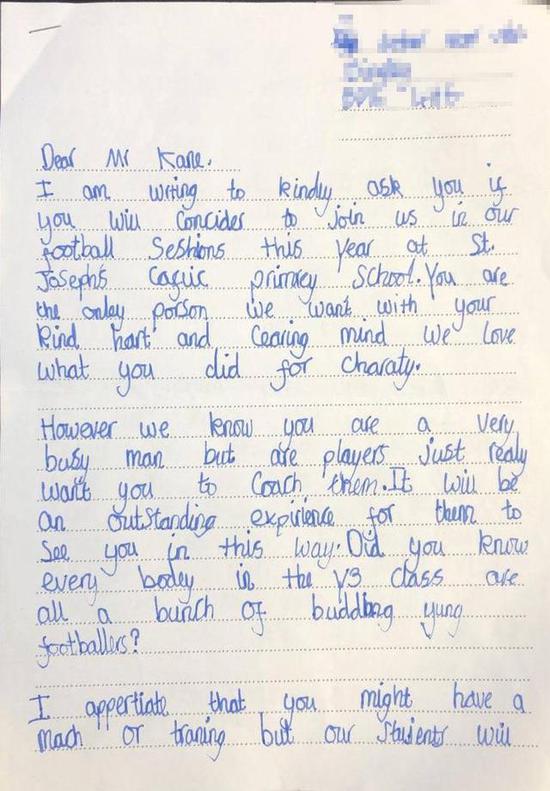 Dear Mr Kane.
I am writing to kindly ask you if
you will Concider to join us in our
football Seshions this year at St.
Joseph's Caguic primrey School. You are
the onley porson we want with your
kind hart and Cearing mind we love
what you did for Charaty.
However we know you are a very
busy man but are players just realy
want you to Coach them. It will be
an outstanding expirience for them to
See you in this way. Did you know
every bodey in the Y3 class are
all a bunch of budding yung
footballers?
I appertiate that you might have a
mach or traning but our Students will